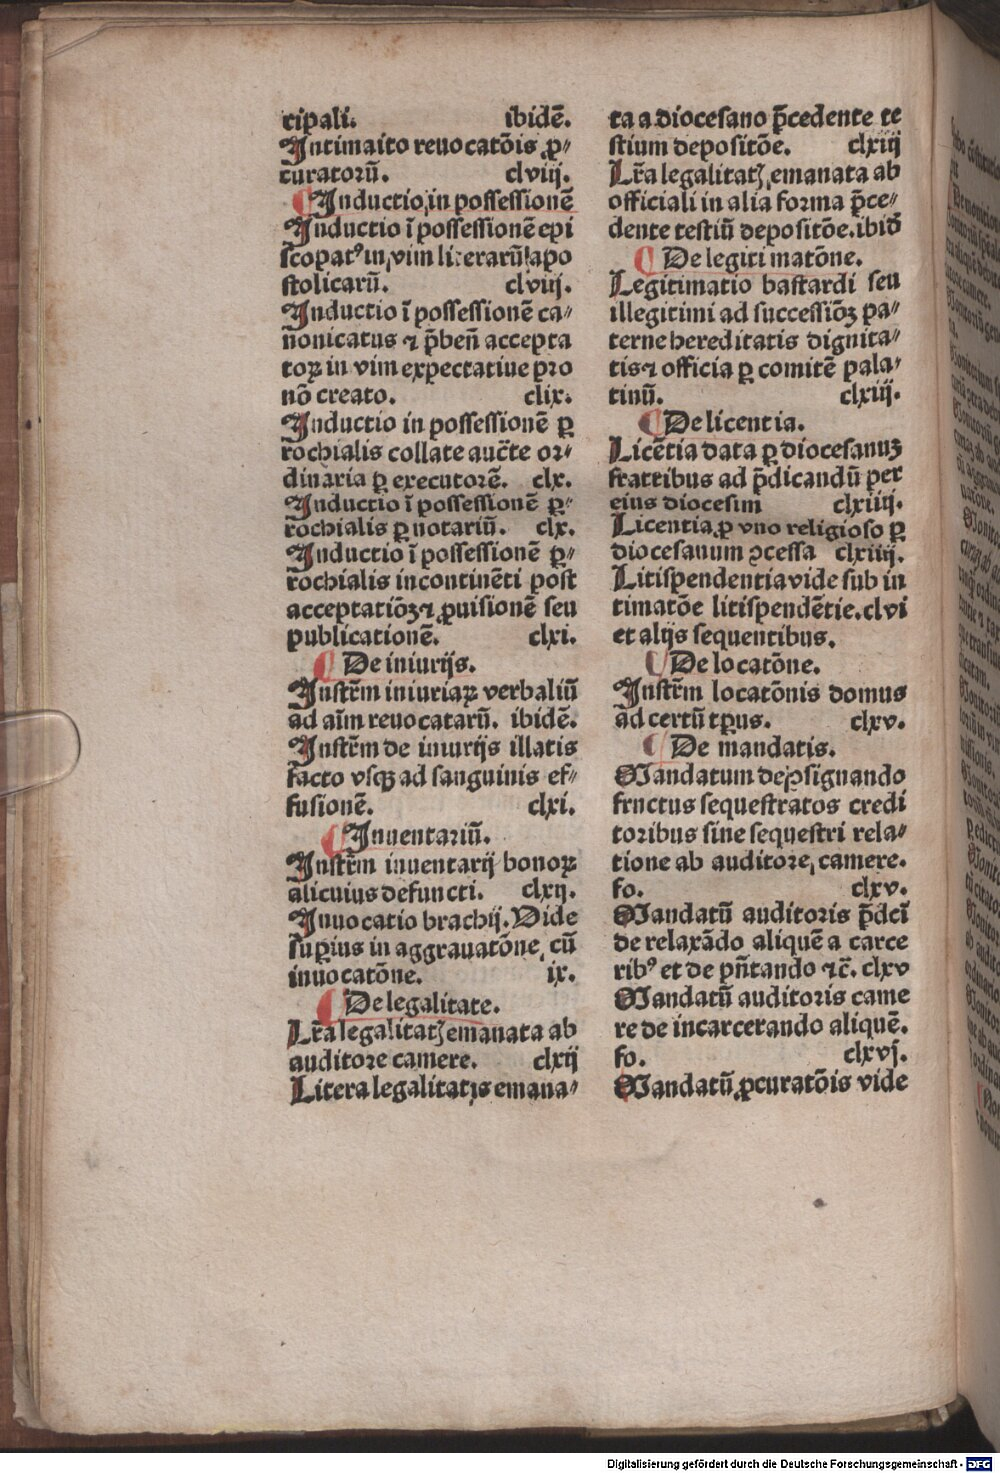 cipali. ibidē.
Intimaito reuocatōis ꝓ⸗
curatorū. clviij.
¶ Inductio in possessionē
Inductio ī possessionē epi
scopatꝰ in vim literarū apo
stolicarū. clviij.
Inductio ī possessionē ca⸗
nonicatus ⁊ p̄beñ accepta
toꝝ in vim expectatiue pro
nō creato. clix.
Inductio in possessionē ꝑ
rochialis collate auc̄te or⸗
dinaria ꝑ executorē. clx.
Inductio ī possessionē ꝑ⸗
rochialis ꝑ notariū. clx.
Inductio ī possessionē ꝑ⸗
rochialis incontinēti post
acceptatiōꝫ ⁊ ꝓuisionē seu
publicationē. clxi.
¶ De iniurijs.
Instr̄m iniuriaꝝ verbaliū
ad aīm reuocatarū. ibidē.
Instr̄m de iniurijs illatis
facto vsqꝫ ad sanguinis ef⸗
fusionē. clxi.
¶ Inuentariū.
Instr̄m inuentarij bonoꝝ
alicuius defuncti. clxij.
Inuocatio brachij. Vide
suꝑius in aggrauatōne, cū
inuocatōne. ix.
¶ De legalitate.
Lr̄a legalitatꝭ emanata ab
auditore camere. clxij
Litera legalitatis emana⸗
ta a diocesano p̄cedente te
stium depositōe. clxiij
Lr̄a legalitatꝭ emanata ab
officiali in alia forma p̄ce⸗
dente testiū depositōe. ibid̄
¶ De legitimatōne.
Legitimatio bastardi seu
illegitimi ad successiōꝫ pa⸗
terne hereditatis dignita⸗
tis ⁊ officia ꝑ comitē pala⸗
tinū. clxiij.
¶ De licentia.
Licētia data ꝑ diocesanuꝫ
fratribus ad p̄dicandū per
eius diocesim clxiiij.
Licentia ꝓ vno religioso ꝑ
diocesanum ꝯcessa clxiiij.
Litispendentia vide sub in
timatōe litispendētie. clvi
et alijs sequentibus.
¶ De locatōne.
Instr̄m locatōnis domus
ad certū tꝑus. clxv.
¶ De mandatis.
Mandatum de ꝓsignando
frnctus sequestratos credi
toribus sine sequestri rela⸗
tione ab auditore, camere.
fo. clxv.
Mandatū auditoris p̄dcī
de relaxādo aliquē a carce
ribꝰ et de pn̄tando ⁊c̄. clxv
Mandatū auditoris came
re de incarcerando aliquē.
fo. clxvj.
Mandatū ꝓcuratōis vide
Digitalisierung gefördert durch die Deutsche Forschungsgemeinschaft - DFG